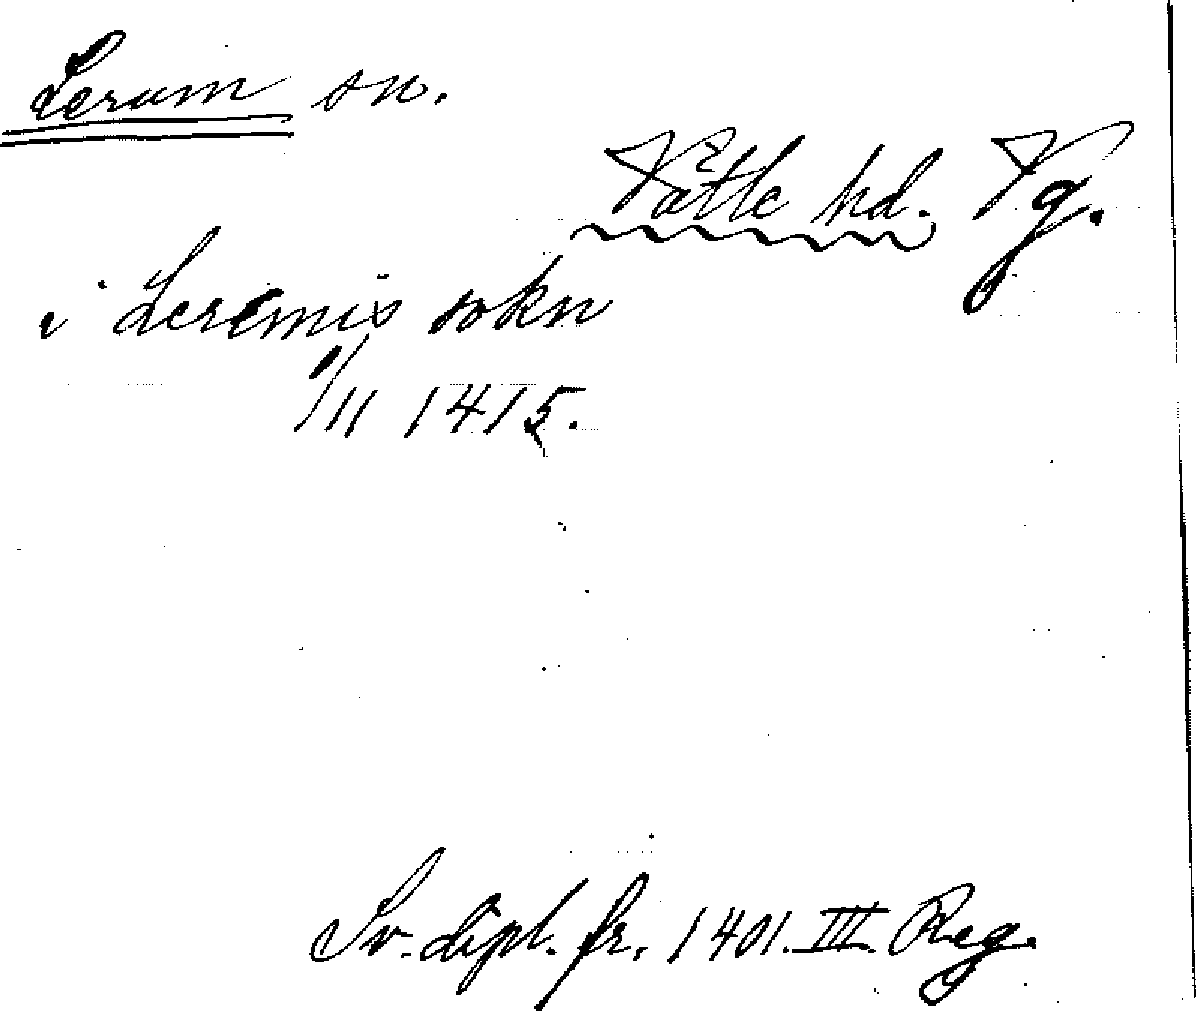 Lerum sn.
Vättle hd. Vg.
i Leremis sokn
1/11 1415.
Sv. dipl. fr. 1401. III. Reg.